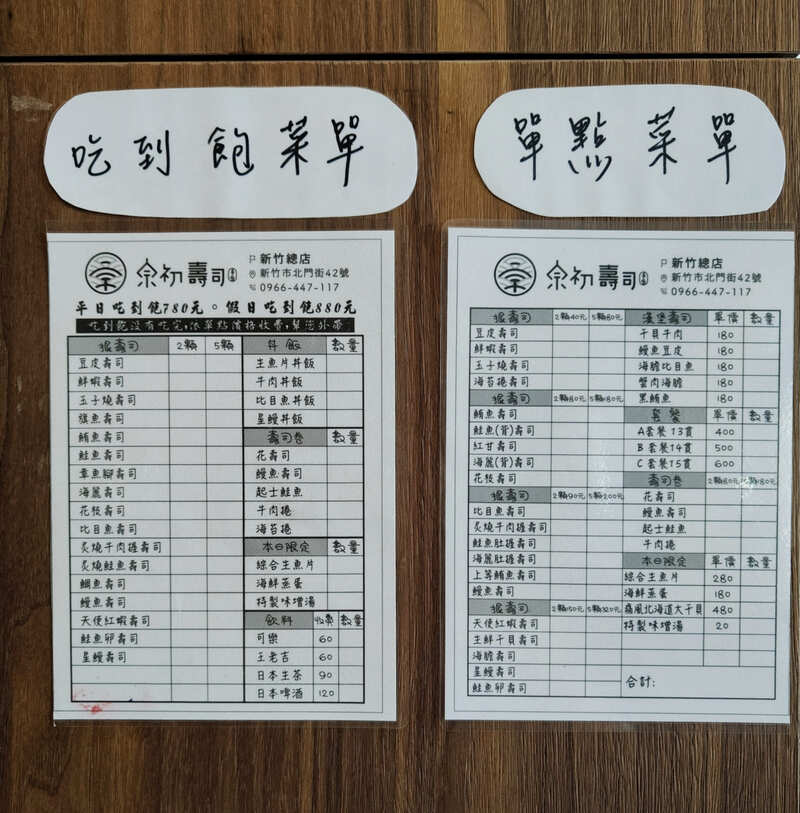 吃到飽菜單
宗初壽司
新竹總店
新竹市北門街42號
0966-447-117
平日吃到飽780元。假日吃到飽880元
吃到飽沒有吃完,依單點價格收費,幫您外帶
握壽司 2顆 5顆
豆皮壽司
鮮蝦壽司
玉子燒壽司
旗魚壽司
鮪魚壽司
鮭魚壽司
章魚腳壽司
海麗壽司
花枝壽司
比目魚壽司
炙燒牛肉握壽司
炙燒鮭魚壽司
鯛魚壽司
鰻魚壽司
天使紅蝦壽司
鮭魚卵壽司
星鰻壽司
丼飯 數量
生魚片丼飯
牛肉丼飯
比目魚丼飯
星鰻丼飯
壽司卷 數量
花壽司
鰻魚壽司
起士鮭魚
牛肉捲
海苔捲
本日限定 數量
綜合生魚片
海鮮蒸蛋
特製味增湯
飲料 收費 數量
可樂 60
王老吉 60
日本生茶 90
日本啤酒 120
單點菜單
宗初壽司
新竹總店
新竹市北門街42號
0966-447-117
握壽司 2顆40元 5顆80元
豆皮壽司
鮮蝦壽司
玉子燒壽司
海苔捲壽司
握壽司 2顆80元 5顆180元
鮪魚壽司
鮭魚(背)壽司
紅甘壽司
海麗(背)壽司
花枝壽司
握壽司 2顆90元 5顆200元
比目魚壽司
炙燒牛肉握壽司
鮭魚肚握壽司
海麗肚握壽司
上等鮪魚壽司
鰻魚壽司
握壽司 2顆150元 5顆320元
天使紅蝦壽司
生鮮干貝壽司
海膽壽司
星鰻壽司
鮭魚卵壽司
漢堡壽司 單價 數量
干貝牛肉 180
鰻魚豆皮 180
海膽比目魚 180
蟹肉海膽 180
黑鮪魚 180
套餐 單價 數量
A套餐13貫 400
B套餐14貫 500
C套餐15貫 600
壽司卷 2顆80元 5顆180元
花壽司
鰻魚壽司
起士鮭魚
牛肉捲
本日限定 單價 數量
綜合生魚片 280
海鮮蒸蛋 180
痛風北海道大干貝 480
特製味增湯 20
合計: